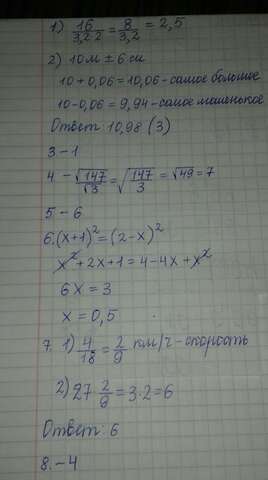 1) 16/3,2·2 = 8/3,2 = 2,5
2) 10м ± 6см
10 + 0,06 = 10,06 - самое большое
10 - 0,06 = 9,94 - самое маленькое
Ответ: 10,98 (3)
3 - 1
4 - √147/√3 = √(147/3) = √49 = 7
5 - 6
6. (x+1)² = (2-x)²
x² + 2x + 1 = 4 - 4x + x²
6x = 3
x = 0,5
7. 1) 4/18 = 2/9 км/ч - скорость
2) 27 · 2/9 = 3·2 = 6
Ответ: 6
8. - 4